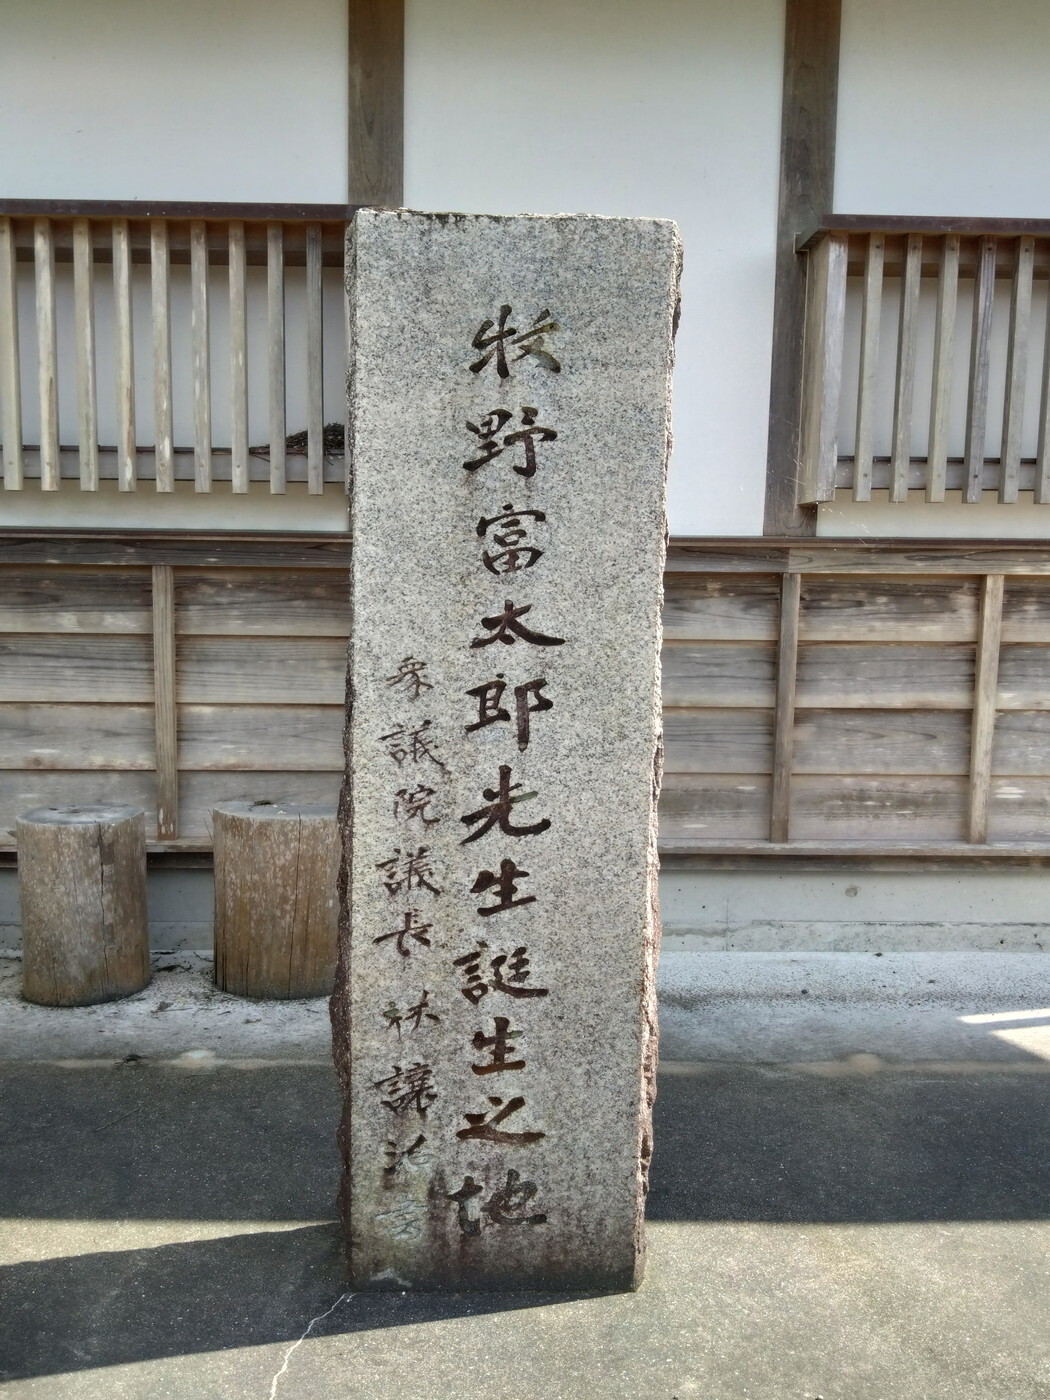 牧野富太郎先生誕生之地
衆議院議長 林讓治書